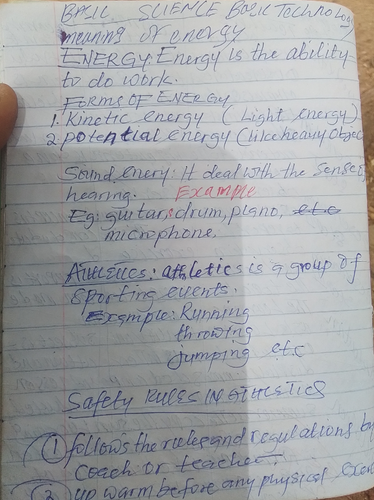 BASIC SCIENCE Basic Technology
meaning of energy
ENERGY: Energy is the ability
to do work.
FORMS OF ENERGY
1. Kinetic energy (Light energy)
2 potential energy (like heavy Objec
Sound enery: It deal with the sense of
hearing. Example
Eg: guitar, drum, piano, etc
microphone.
Athletics: athletics is a group of
Sporting events.
Example: Running
throwing
jumping etc
Safety RULES IN ATHLETICS
1 follows the rules and regulations by
coach or teacher.
2 up warm before any physical exer